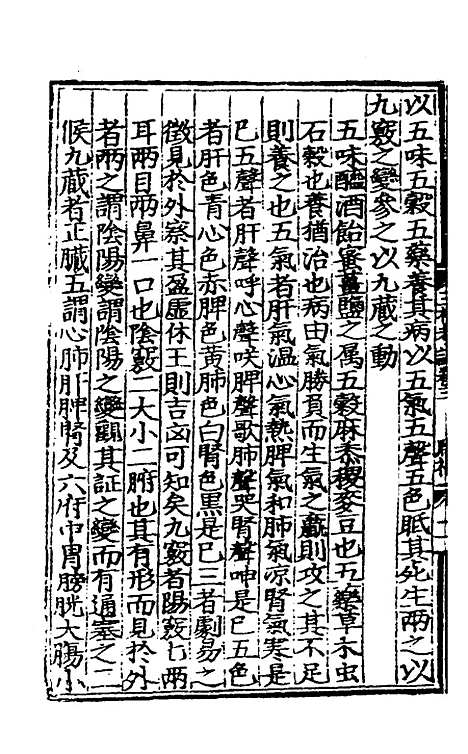 以五味五穀五藥養其病以五氣五聲五色眡其死生兩之以
九竅之變參之以九藏之動
五味醯酒飴蜜薑鹽之属五穀麻黍稷麥豆也五藥草木虫
石穀也養猶治也病由氣勝負而生氣之羸則攻之其不足
則養之也五氣者肝氣温心氣熱脾氣和肺氣凉腎氣寒是
巳五聲者肝聲呼心聲咲脾聲歌肺聲哭腎聲呻是巳五色
者肝色青心色赤脾色黄肺色白腎色黒是巳三者劇易之
徴見於外察其盈虚休王則吉凶可知矣九竅者陽竅七兩
耳兩目兩鼻一口也陰竅二大小二腑也其有形而見於外
者兩之謂陰陽變謂陰陽之變觀其証之變而有通塞之二
候九蔵者正臓五謂心肺肝脾腎及六府中胃膀胱大膓小